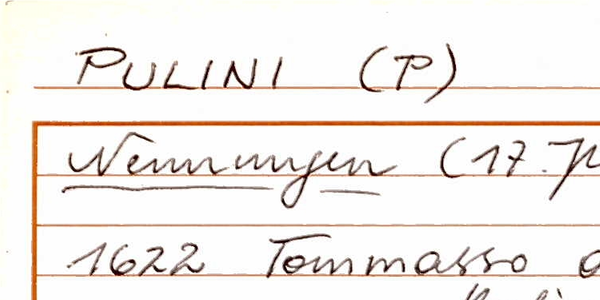 PULINI (P)
Nennungen (17.
1622 Tommasso